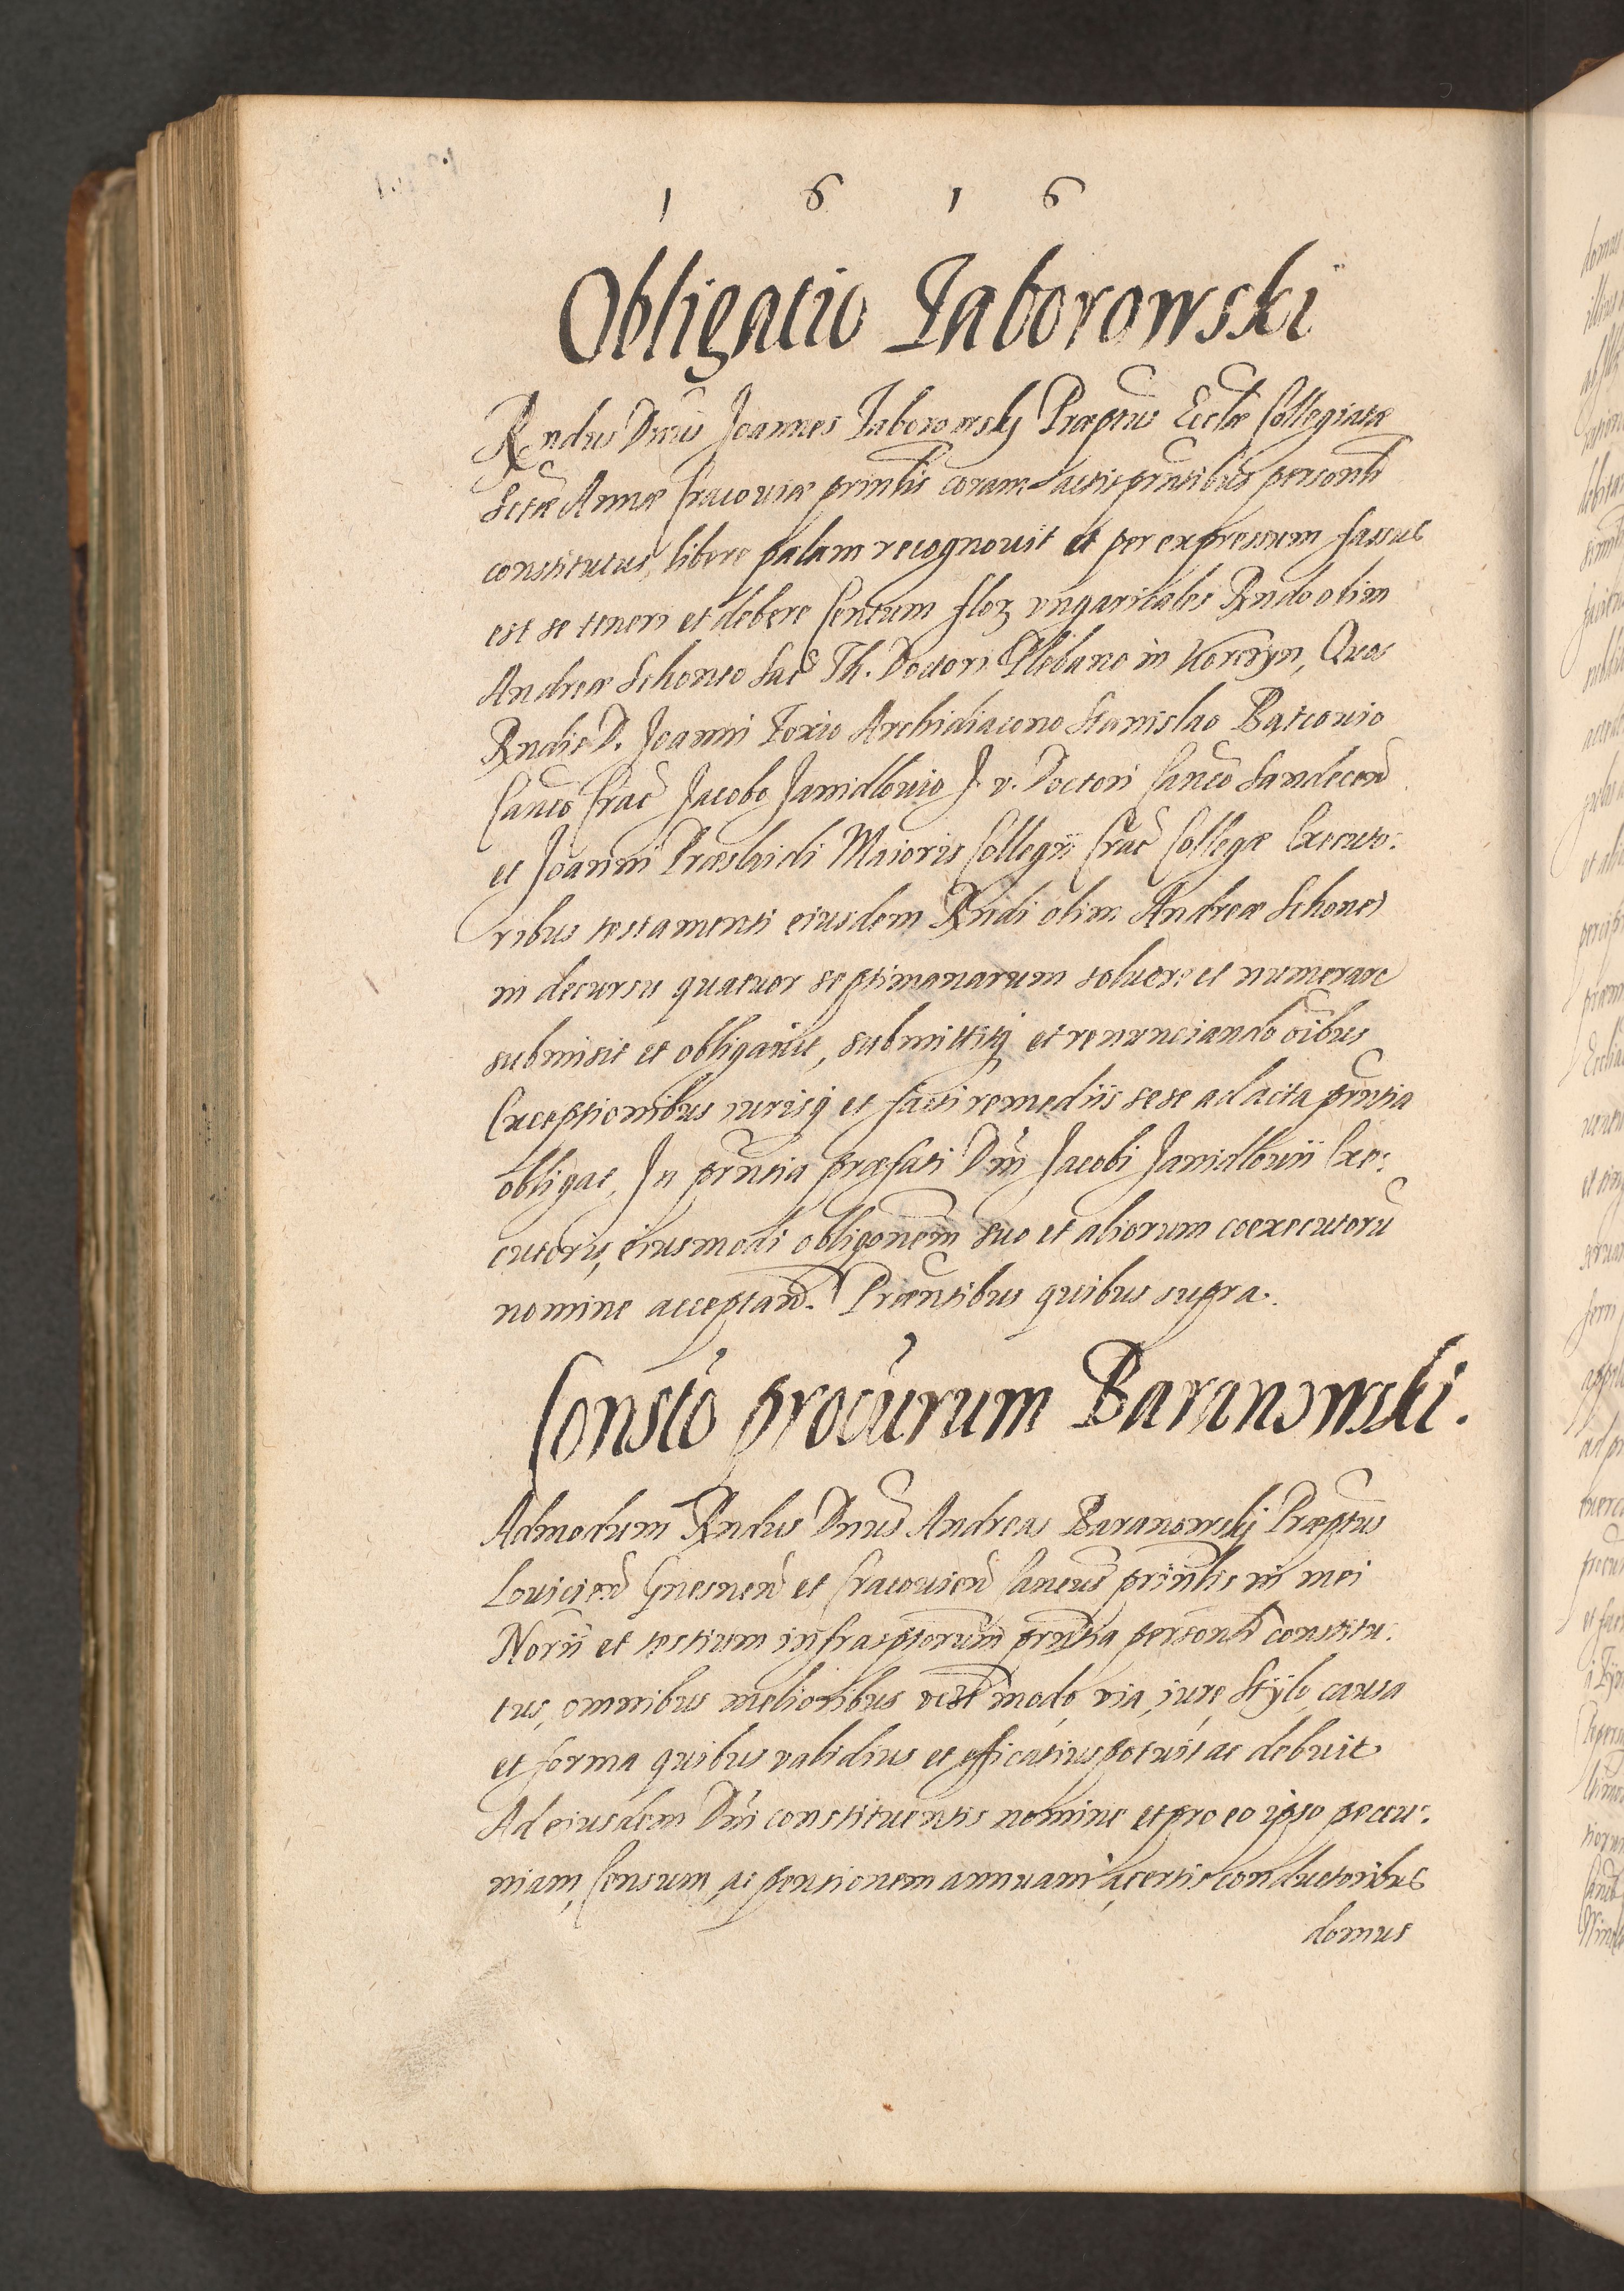 1 6 1 6
Obligatio Taborowski
Rndus Dnus Joannes Taborowskj Præptus Ecclæ Collegiatæ
Sctæ Annæ Cracouiæ prinlis coram actis prntibus personlr
constitutus, libere palam recognouit et per expressum fassus
est se teneri et debere Centum floz vngaricales Rndo olim
Andreæ Schoneo Sac Th. Doctori Plebano in Korczyn, Quos
Rndis D. Joanni Foxio Archidiacono Stanislao Batcouio
Canco Crac Jacobo Janidlouio J. v. Doctori Canco Sandecen
et Joanni Præslaidi Maioris Collegii Crac Collegæ Executo:
ribus testamenti eiusdem Rndi olim Andreæ Schonei
in decursu quatuor septimanarum soluere et numerare
submisit et obligauit, submittitq et renunciando oibus
Exceptionibus iurisq et facti remediis sese ad acta prntia
obligat, In prntia præfati Dni Jacobi Janidlouii Exe:
cutoris, eiusmodi obligonem suo et aliorum coexecutoru
nomine acceptan. Præntibus quibus supra.
Constio procurum Baranowski.
Admodum Rndus Dnus Andreas Baranowskj Præptus
Louicien Gnesnen et Cracouien Cancus prinlis in mei
Norii et testium infrasptorum prntia personlr constitu:
tus, omnibus melioribus modo, via, iure, Stÿlo, causa
et forma quibus validius et efficatius potuit ac debuit
Ad eiusdem Dni constituentis nomine et pro eo ipso pecu:
niam, Censum, ac pensionem annuam, a certis conductoribus
domus